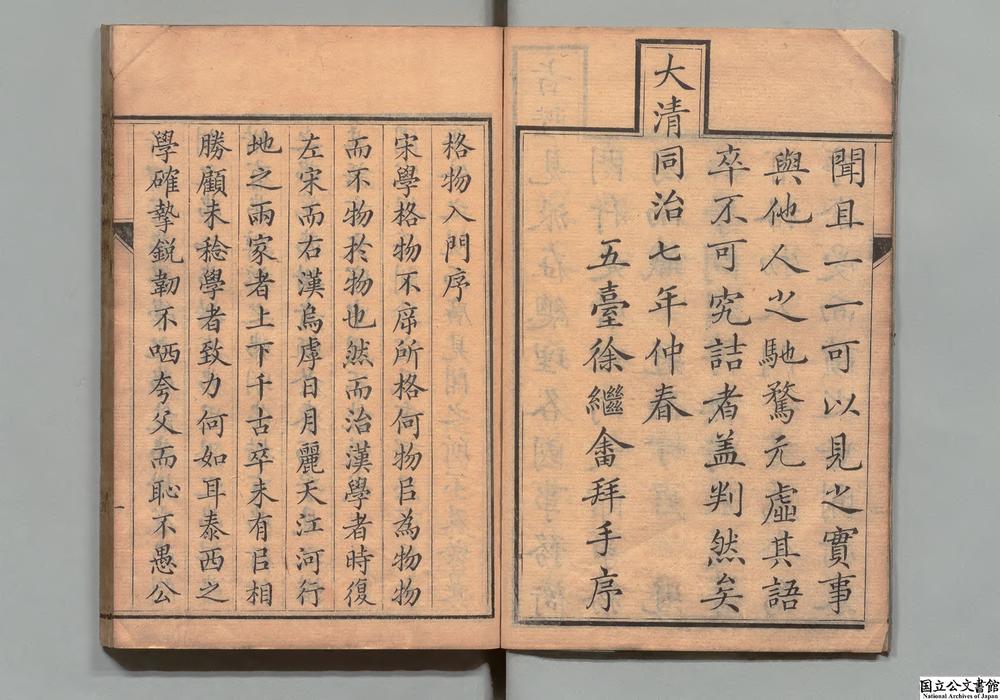 聞且一一可以見之實事
與他人之馳騖元虛其語
卒不可究詰者盖判然矣
大清同治七年仲春
五臺徐繼畬拜手序
格物入門序
宋學格物不㡿所格何物㠯為物物
而不物於物也然而治漢學者時復
左宋而右漢烏虖日月麗天江河行
地之兩家者上下千古卒未有㠯相
勝顧未稔學者致力何如耳泰西之
學確摯銳韌不哂夸父而恥不愚公
一
国立公文書館
National Archives of Japan